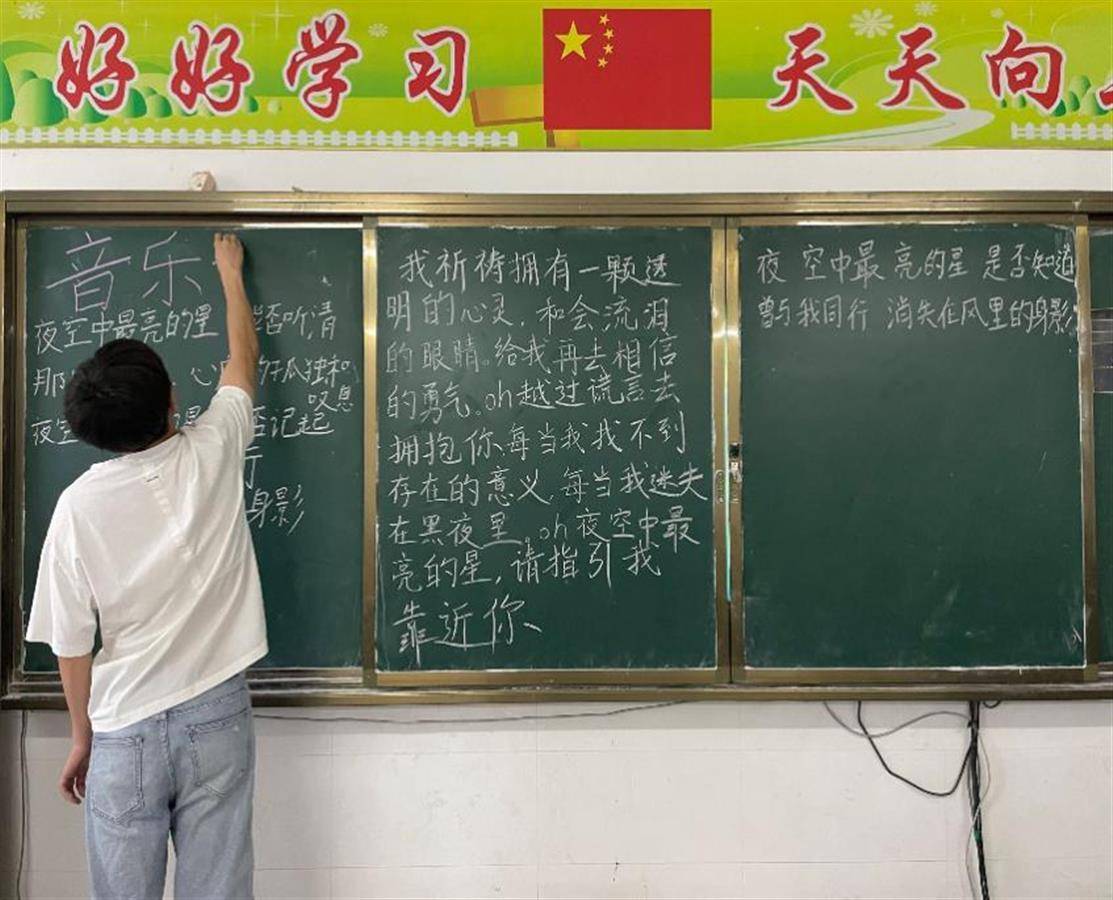 好好学习 天天向
音乐
夜空中最亮的星 否听清
那 心 孤独和
叹息
夜空 否记起
身影
我祈祷拥有一颗透
明的心灵,和会流泪
的眼睛。给我再去相信
的勇气。oh越过谎言去
拥抱你,每当我我不到
存在的意义,每当我迷失
在黑夜里。oh夜空中最
亮的星,请指引我
靠近你
夜空中最亮的星 是否知道
曾与我同行 消失在风里的身影